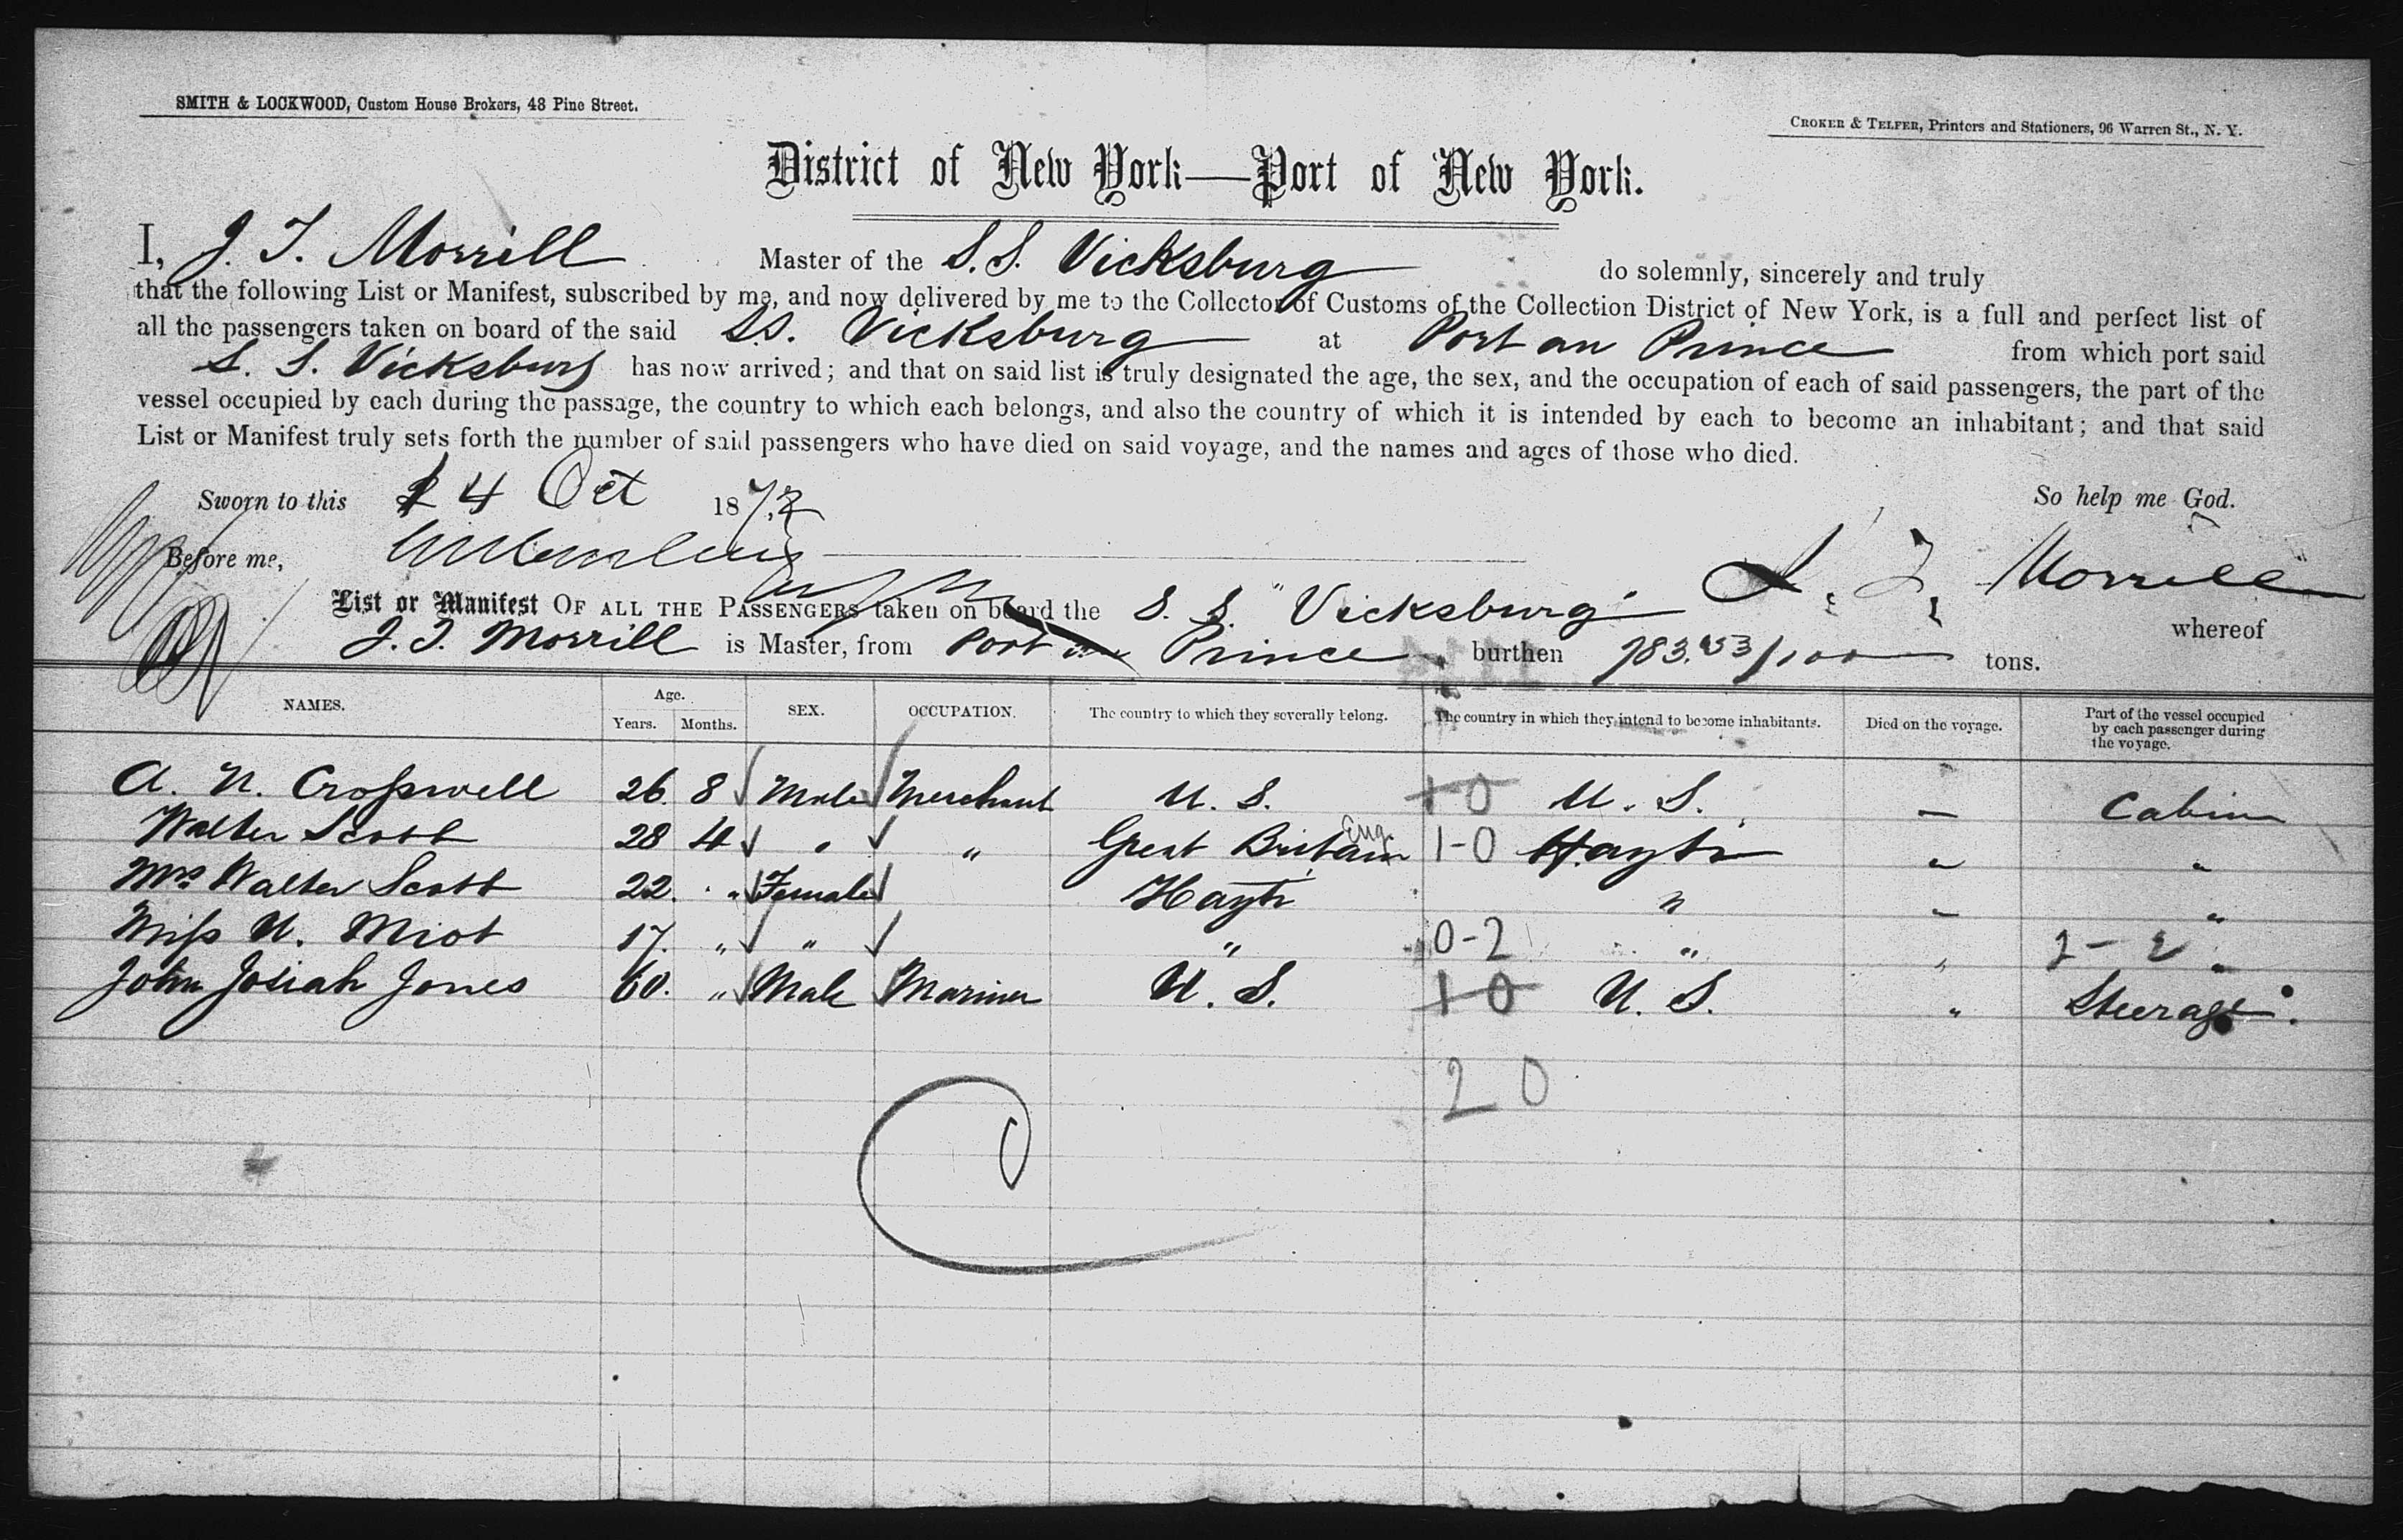 SMITH & LOCKWOOD, Custom House Brokers, 48 Pine Street.
CROKER & TELFER, Printers and Stationers, 96 Warren St., N. Y.
District of New York—Port of New York.
I, J. T. Morrill Master of the S.S. Vicksburg do solemnly, sincerely and truly
that the following List or Manifest, subscribed by me, and now delivered by me to the Collector of Customs of the Collection District of New York, is a full and perfect list of
all the passengers taken on board of the said SS. Vicksburg at Port au Prince from which port said
S. S. Vicksburg has now arrived; and that on said list is truly designated the age, the sex, and the occupation of each of said passengers, the part of the
vessel occupied by each during the passage, the country to which each belongs, and also the country of which it is intended by each to become an inhabitant; and that said
List or Manifest truly sets forth the number of said passengers who have died on said voyage, and the names and ages of those who died.
Sworn to this 4 Oct 1872 So help me God.
Before me, J. T. Morrill
List or Manifest OF ALL THE PASSENGERS taken on board the S. S. "Vicksburg" whereof
J. T. Morrill is Master, from Port au Prince burthen 983.53/100 tons.
NAMES. Age. Years. Months. SEX. OCCUPATION. The country to which they severally belong. The country in which they intend to become inhabitants. Died on the voyage. Part of the vessel occupied by each passenger during the voyage.
A. N. Croſswell 26. 8 Male Merchant U. S. 1 0 U. S. — Cabin
Walter Scott 28 4 " " Great Britain Eng. 1-0 Hayti " "
Mrs Walter Scott 22. " Female Hayti " " "
Miſs U. Miot 17. " " " 0-2 " " 2 - "
John Josiah Jones 60. " Male Mariner U. S. 1 0 U. S. " Steerage.
2 0